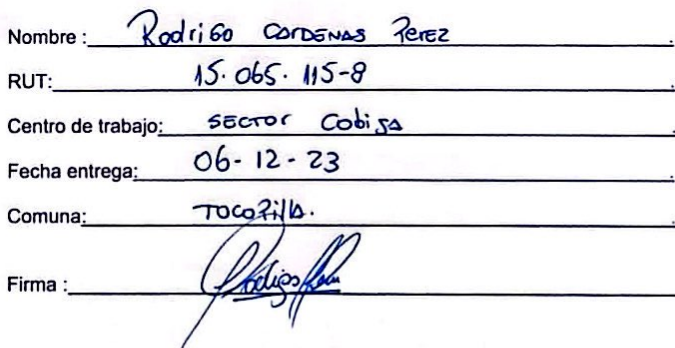 Nombre : Rodrigo CARDENAS PEREZ.
RUT: 15.065.115-8.
Centro de trabajo: SECTOR Cobija.
Fecha entrega: 06-12-23.
Comuna: TOCOPILLA..
Firma :